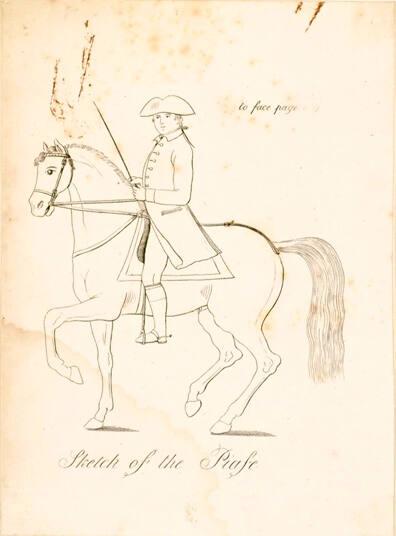 to face page
Sketch of the Piafe